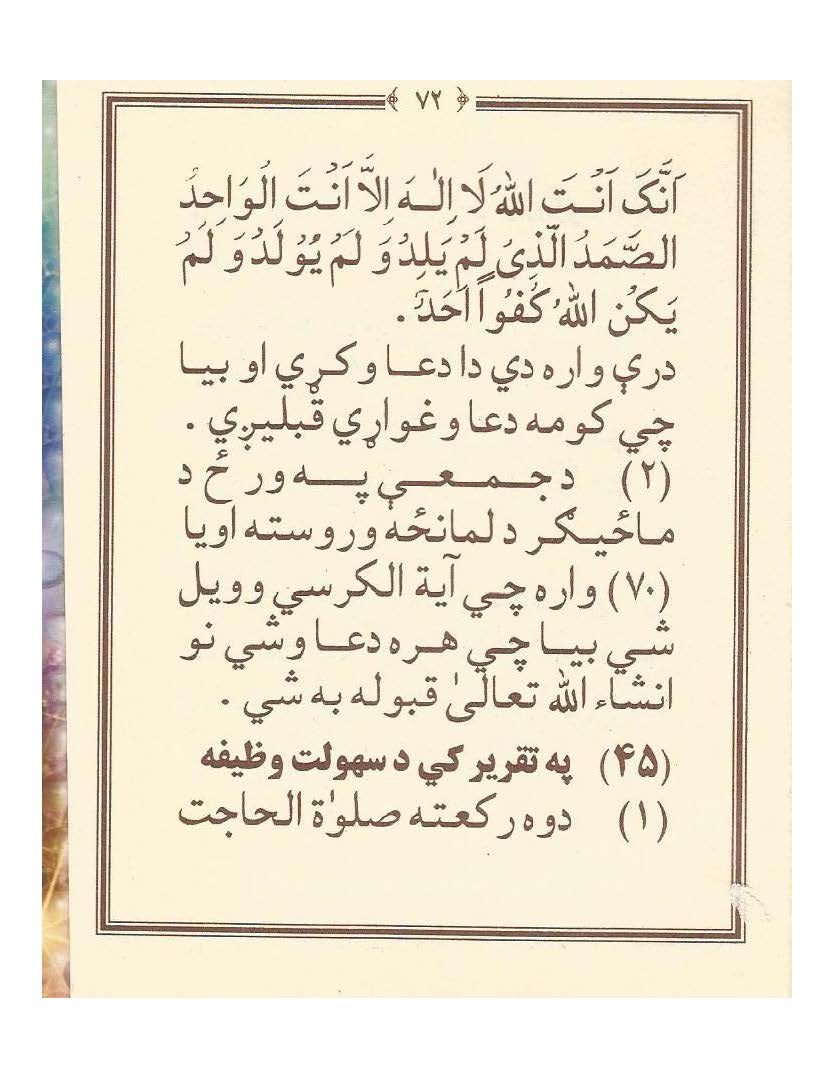 ﴿ ۷۲ ﴾
اَنَّکَ اَنْتَ اللهُ لَا اِلٰهَ اِلَّا اَنْتَ الْوَاحِدُ
الصَّمَدُ الَّذِیْ لَمْ یَلِدْ وَ لَمْ یُوْلَدْ وَ لَمْ
یَکُنْ اللهُ کُفُواً اَحَدٌ .
درې واره دي دا دعا وکړي او بيا
چي کومه دعا وغواړي قبليږي .
(۲) د جمعې په ورځ د
ماځيګر د لمانځه وروسته اويا
(۷۰) واره چي آية الکرسي وويل
شي بيا چي هره دعا وشي نو
انشاء الله تعالیٰ قبوله به شي .
(۴۵) په تقرير کي د سهولت وظيفه
(۱) دوه رکعته صلوٰة الحاجت